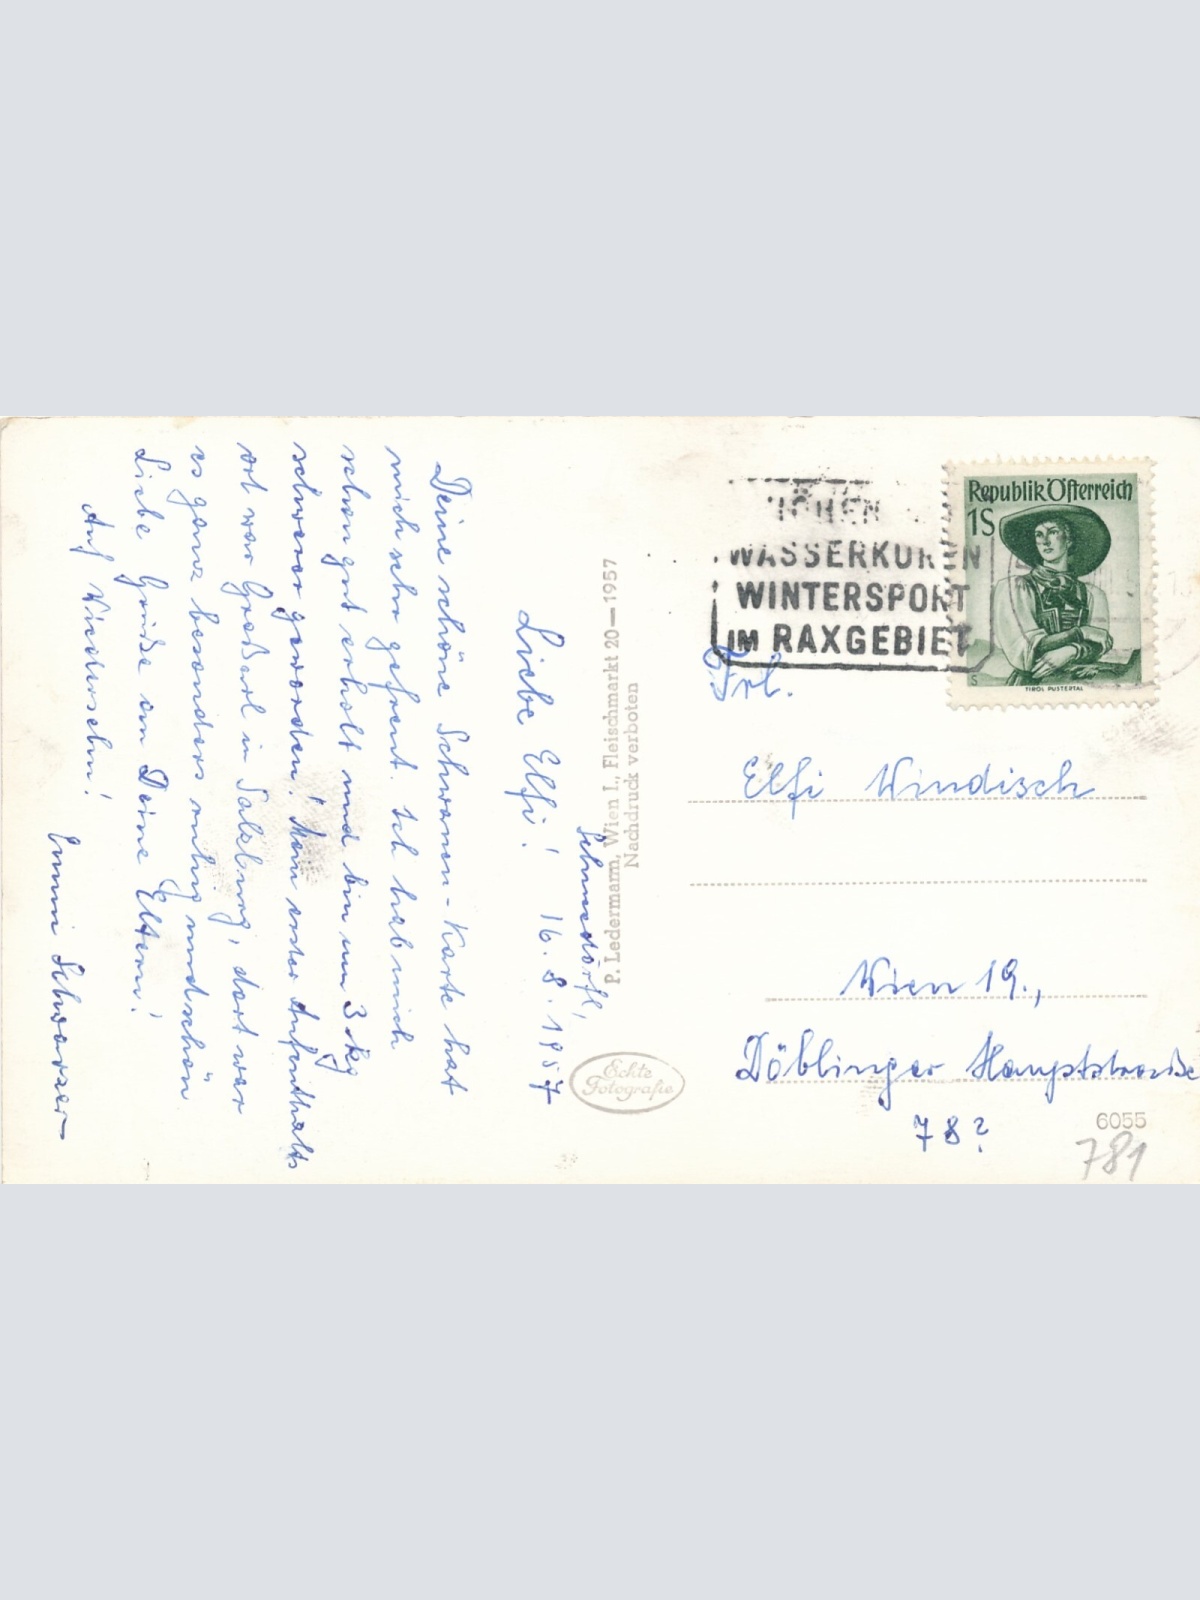 Schneedörfl,
Liebe Elfi! 16.8.1957
Deine schöne Schwanen-Karte hat
mich sehr gefreut. Ich hab mich
schon gut erholt und bin um 3 kg
schwerer geworden! Mein erster Aufenthalts
ort war Großarl in Salzburg, dort war
es ganz besonders ruhig und schön.
Liebe Grüße an Deine Eltern!
Auf Wiedersehn!
Emmi Schwarzer
P. Ledermann, Wien I., Fleischmarkt 20—1957
Nachdruck verboten
Echte
Fotografie
WASSERKUREN
WINTERSPORT
IM RAXGEBIET
Republik Österreich
1S
S
TIROL PUSTERTAL
Frl.
Elfi Windisch
Wien 19.,
Döblinger Hauptstraße
78?
6055
781